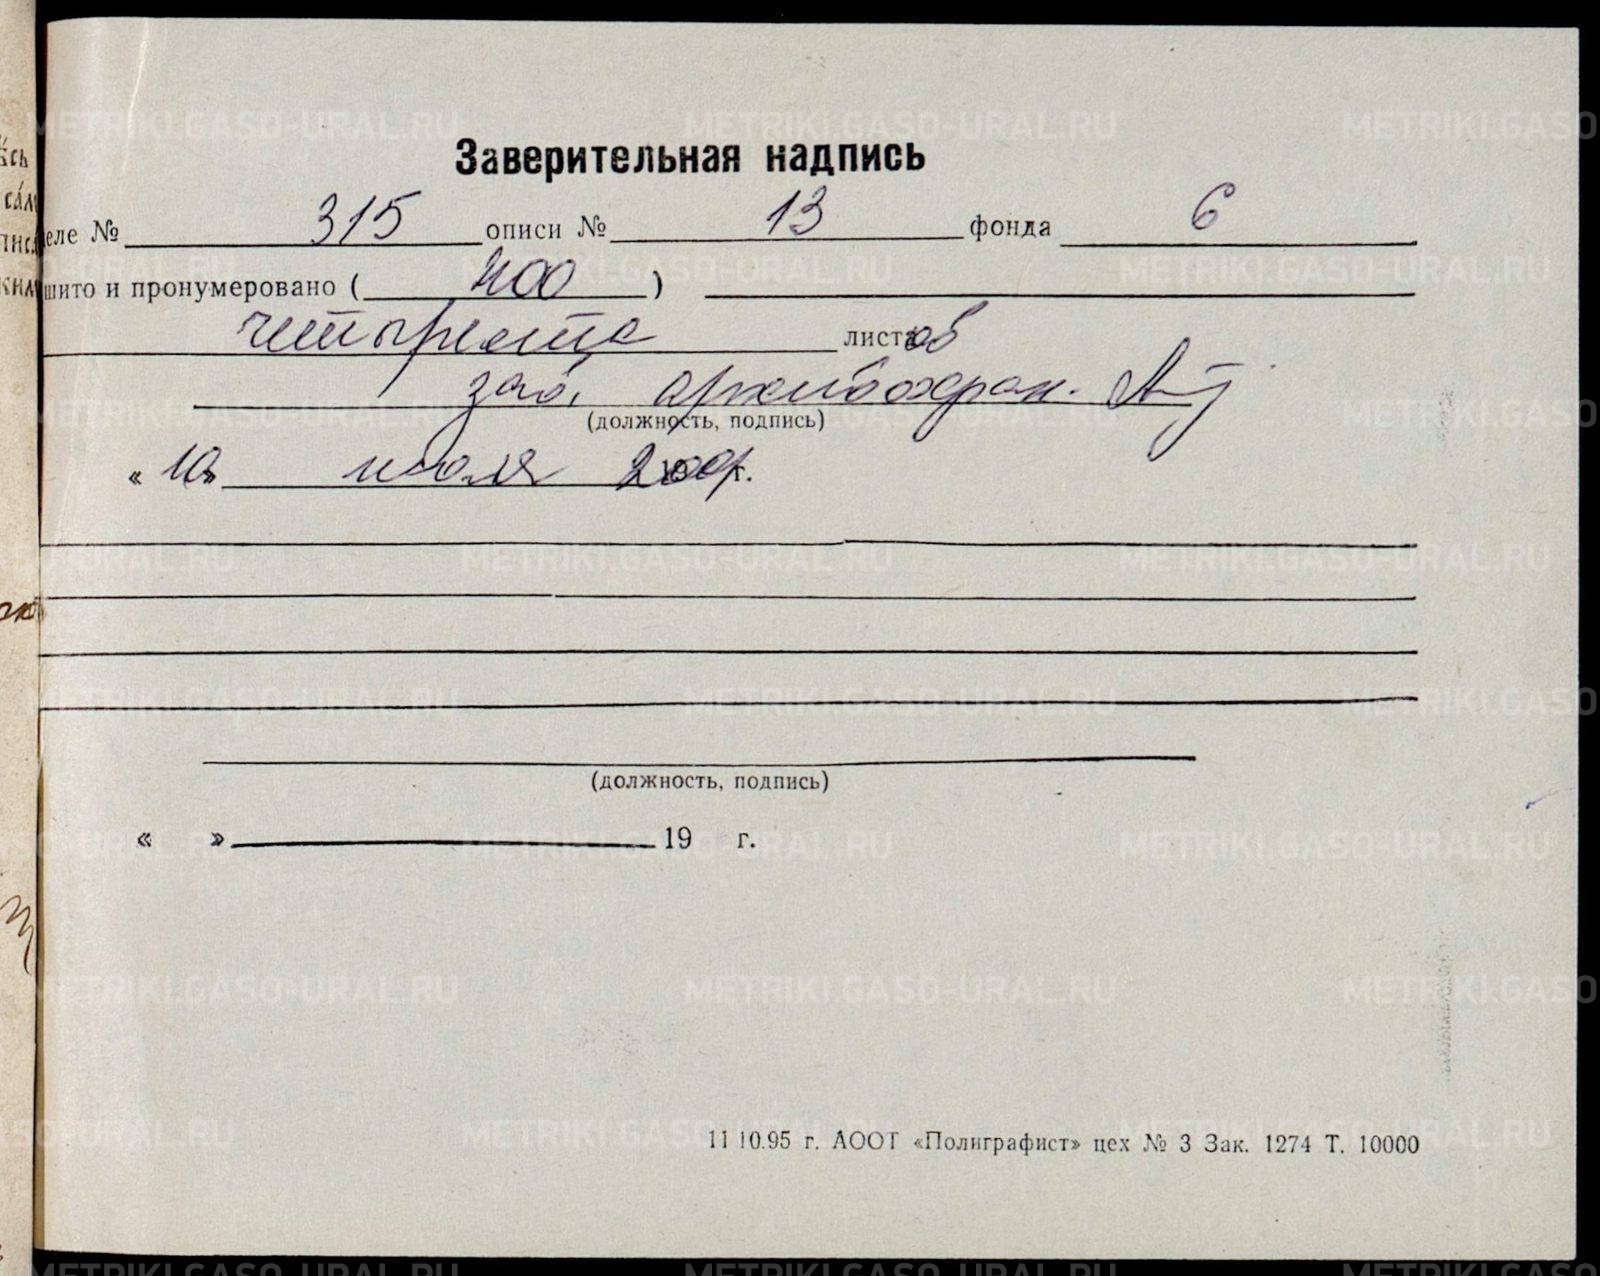 Заверительная надпись
еле № 315 описи № 13 фонда 6
шито и пронумеровано ( 400 )
четыреста листов
зав. архивохран.
(должность, подпись)
« 10 » июля г.
(должность, подпись)
« » 19 г.
11 10.95 г. АООТ «Полиграфист» цех № 3 Зак. 1274 Т. 10000
METRIKI.GASO-URAL.RU